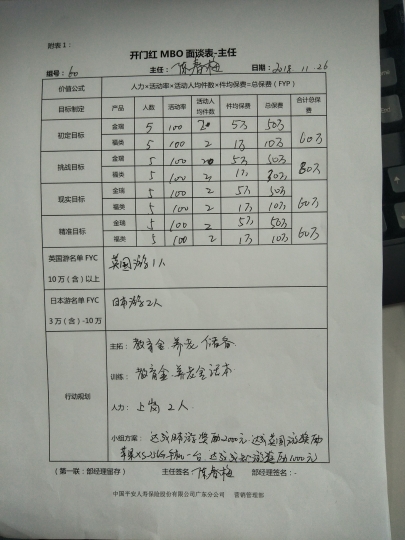 附表1：
开门红 MBO 面谈表-主任
编号：60 主任：陈春梅 日期：2018.11.26
价值公式 人力×活动率×活动人均件数×件均保费=总保费（FYP）
目标制定 产品 人数 活动率 活动人均件数 件均保费 总保费 合计总保费
初定目标 金瑞 5 100 20 5万 50万 60万
福类 5 100 2 1万 10万
挑战目标 金瑞 5 100 20 5万 50万 80万
福类 5 100 1万 30万
现实目标 金瑞 5 100 2 5万 50万 60万
福类 5 100 2 1万 10万
精准目标 金瑞 5 100 2 5万 50万 60万
福类 5 100 2 1万 10万
英国游名单 FYC 10万（含）以上 英国游1人
日本游名单 FYC 3万（含）-10万 日本游2人
行动规划
主拓：教育金 养老 储备
训练：教育金 养老金话本
人力：上岗 2人
小组方案：达成 游奖励2000元 达成英国游奖励
苹果XS 手机一台 达成 游奖励1000元
（第一联：部经理留存） 主任签名：陈春梅 部经理签名：
中国平安人寿保险股份有限公司广东分公司 营销管理部